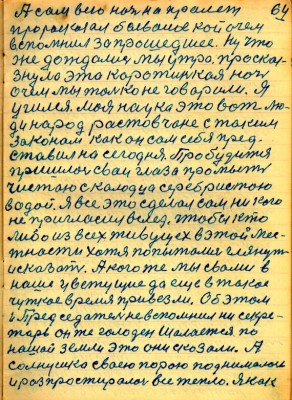 64
А сам всю ночь на пролёт
прорассказал бывалое кой о чем
вспомнил за прошедшее. Ну что
же дождалися мы утра, проскак-
знула эта коротинкая ночь
о чем мы только не говорили. Я
учился. Моя наука это вот лю-
ди народ растовчане с таким
законам как он сам себя пред-
ставил на сегодня. Пробудится
пришлось сваи глаза промыть
чистою с калодца серебристою
водой. Я все это сделал сам ни кого
не пригласил вслед, чтобы кто
либо из всех живущех в этой мес-
тнасти хотя попытался глянуть
и сказать. А кого те мы сваим в
наше цветущие да еще в такое
чуткое время привезли. Об этом
и Председатель не вспомнил ни секре-
тарь он же голоден шалается по
нашой земли это они сказали. А
солнушко сваею порою поднималось
и распростиралось все тепло. Я как